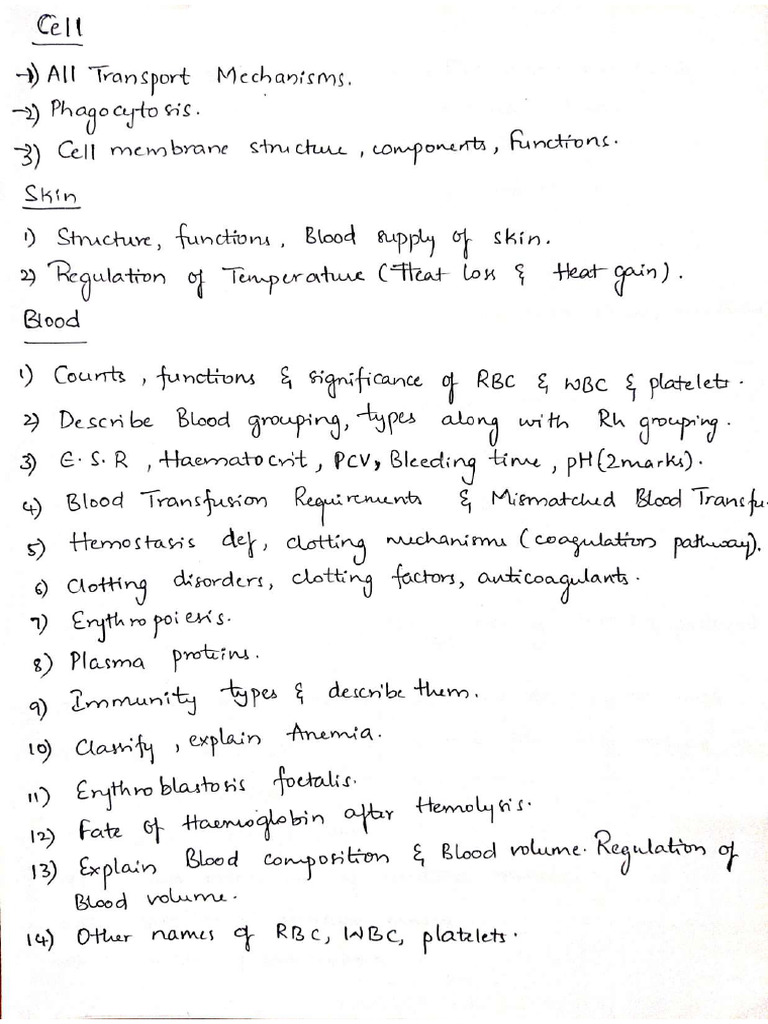 Cell
→1) All Transport Mechanisms.
→2) Phagocytosis.
→3) Cell membrane structure, components, Functions.
Skin
1) Structure, functions, Blood supply of skin.
2) Regulation of Temperature (Heat Loss & Heat gain).
Blood
1) Counts, functions & significance of RBC & WBC & platelets.
2) Describe Blood grouping, types along with Rh grouping.
3) E.S.R, Haematocrit, PCV, Bleeding time, pH (2marks).
4) Blood Transfusion Requirements & Mismatched Blood Transfu.
5) Hemostasis def, clotting mechanisms (coagulation pathway).
6) Clotting disorders, clotting factors, anticoagulants.
7) Erythropoiesis.
8) Plasma proteins.
9) Immunity types & describe them.
10) Classify, explain Anemia.
11) Erythroblastosis foetalis.
12) Fate of Haemoglobin after Hemolysis.
13) Explain Blood composition & Blood volume. Regulation of
Blood volume.
14) Other names of RBC, WBC, platelets.